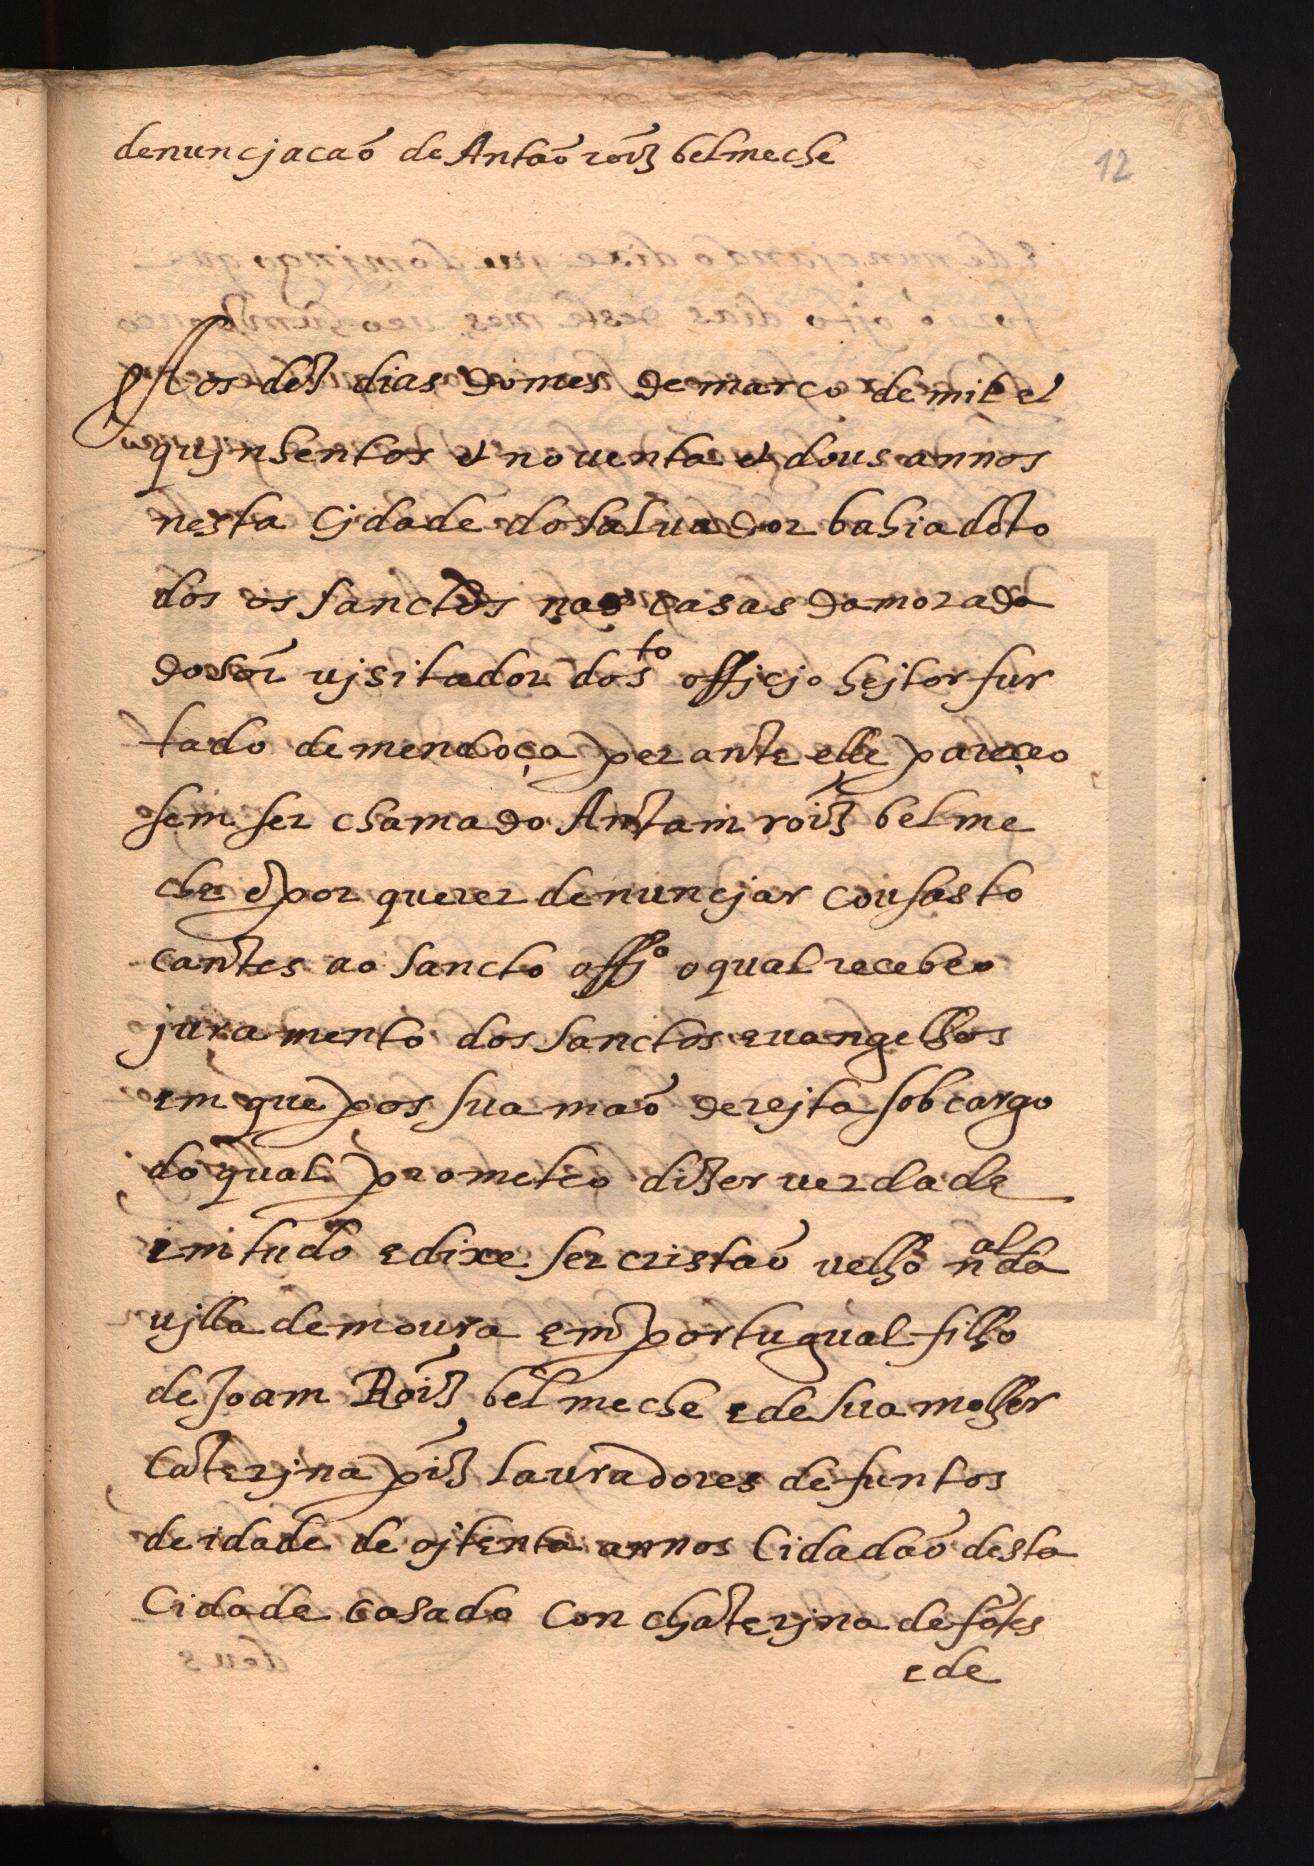 denuncjacaõ de Antaõ roĩz belmeche
12
Aos dez dias do mes de março de mil et
qujnhentos et noventa et dous annos
nesta Cjdade do Saluador bahia de to
dos os sanctos nas casas da morada
do sõr vjsitador do sto officjo hejtor fur
tado de mendoça perante elle pareçeo
sem ser chamado Antam roĩz belme
che e por querer denuncjar cousas to
cantes ao sancto offo o qual recebeo
juramento dos sanctos euangelhos
em que pos sua maõ derejta sob cargo
do qual prometeo dizer verdade
em tudo e dixe ser cristaõ velho nal da
vjlla de moura em portugual filho
de Joam Roĩz belmeche e de sua molher
Caterjna pĩz lauradores defuntos
de idade de ojtenta annos Cidadaõ desta
Cidade casado con chaterjna de fõtes
e de